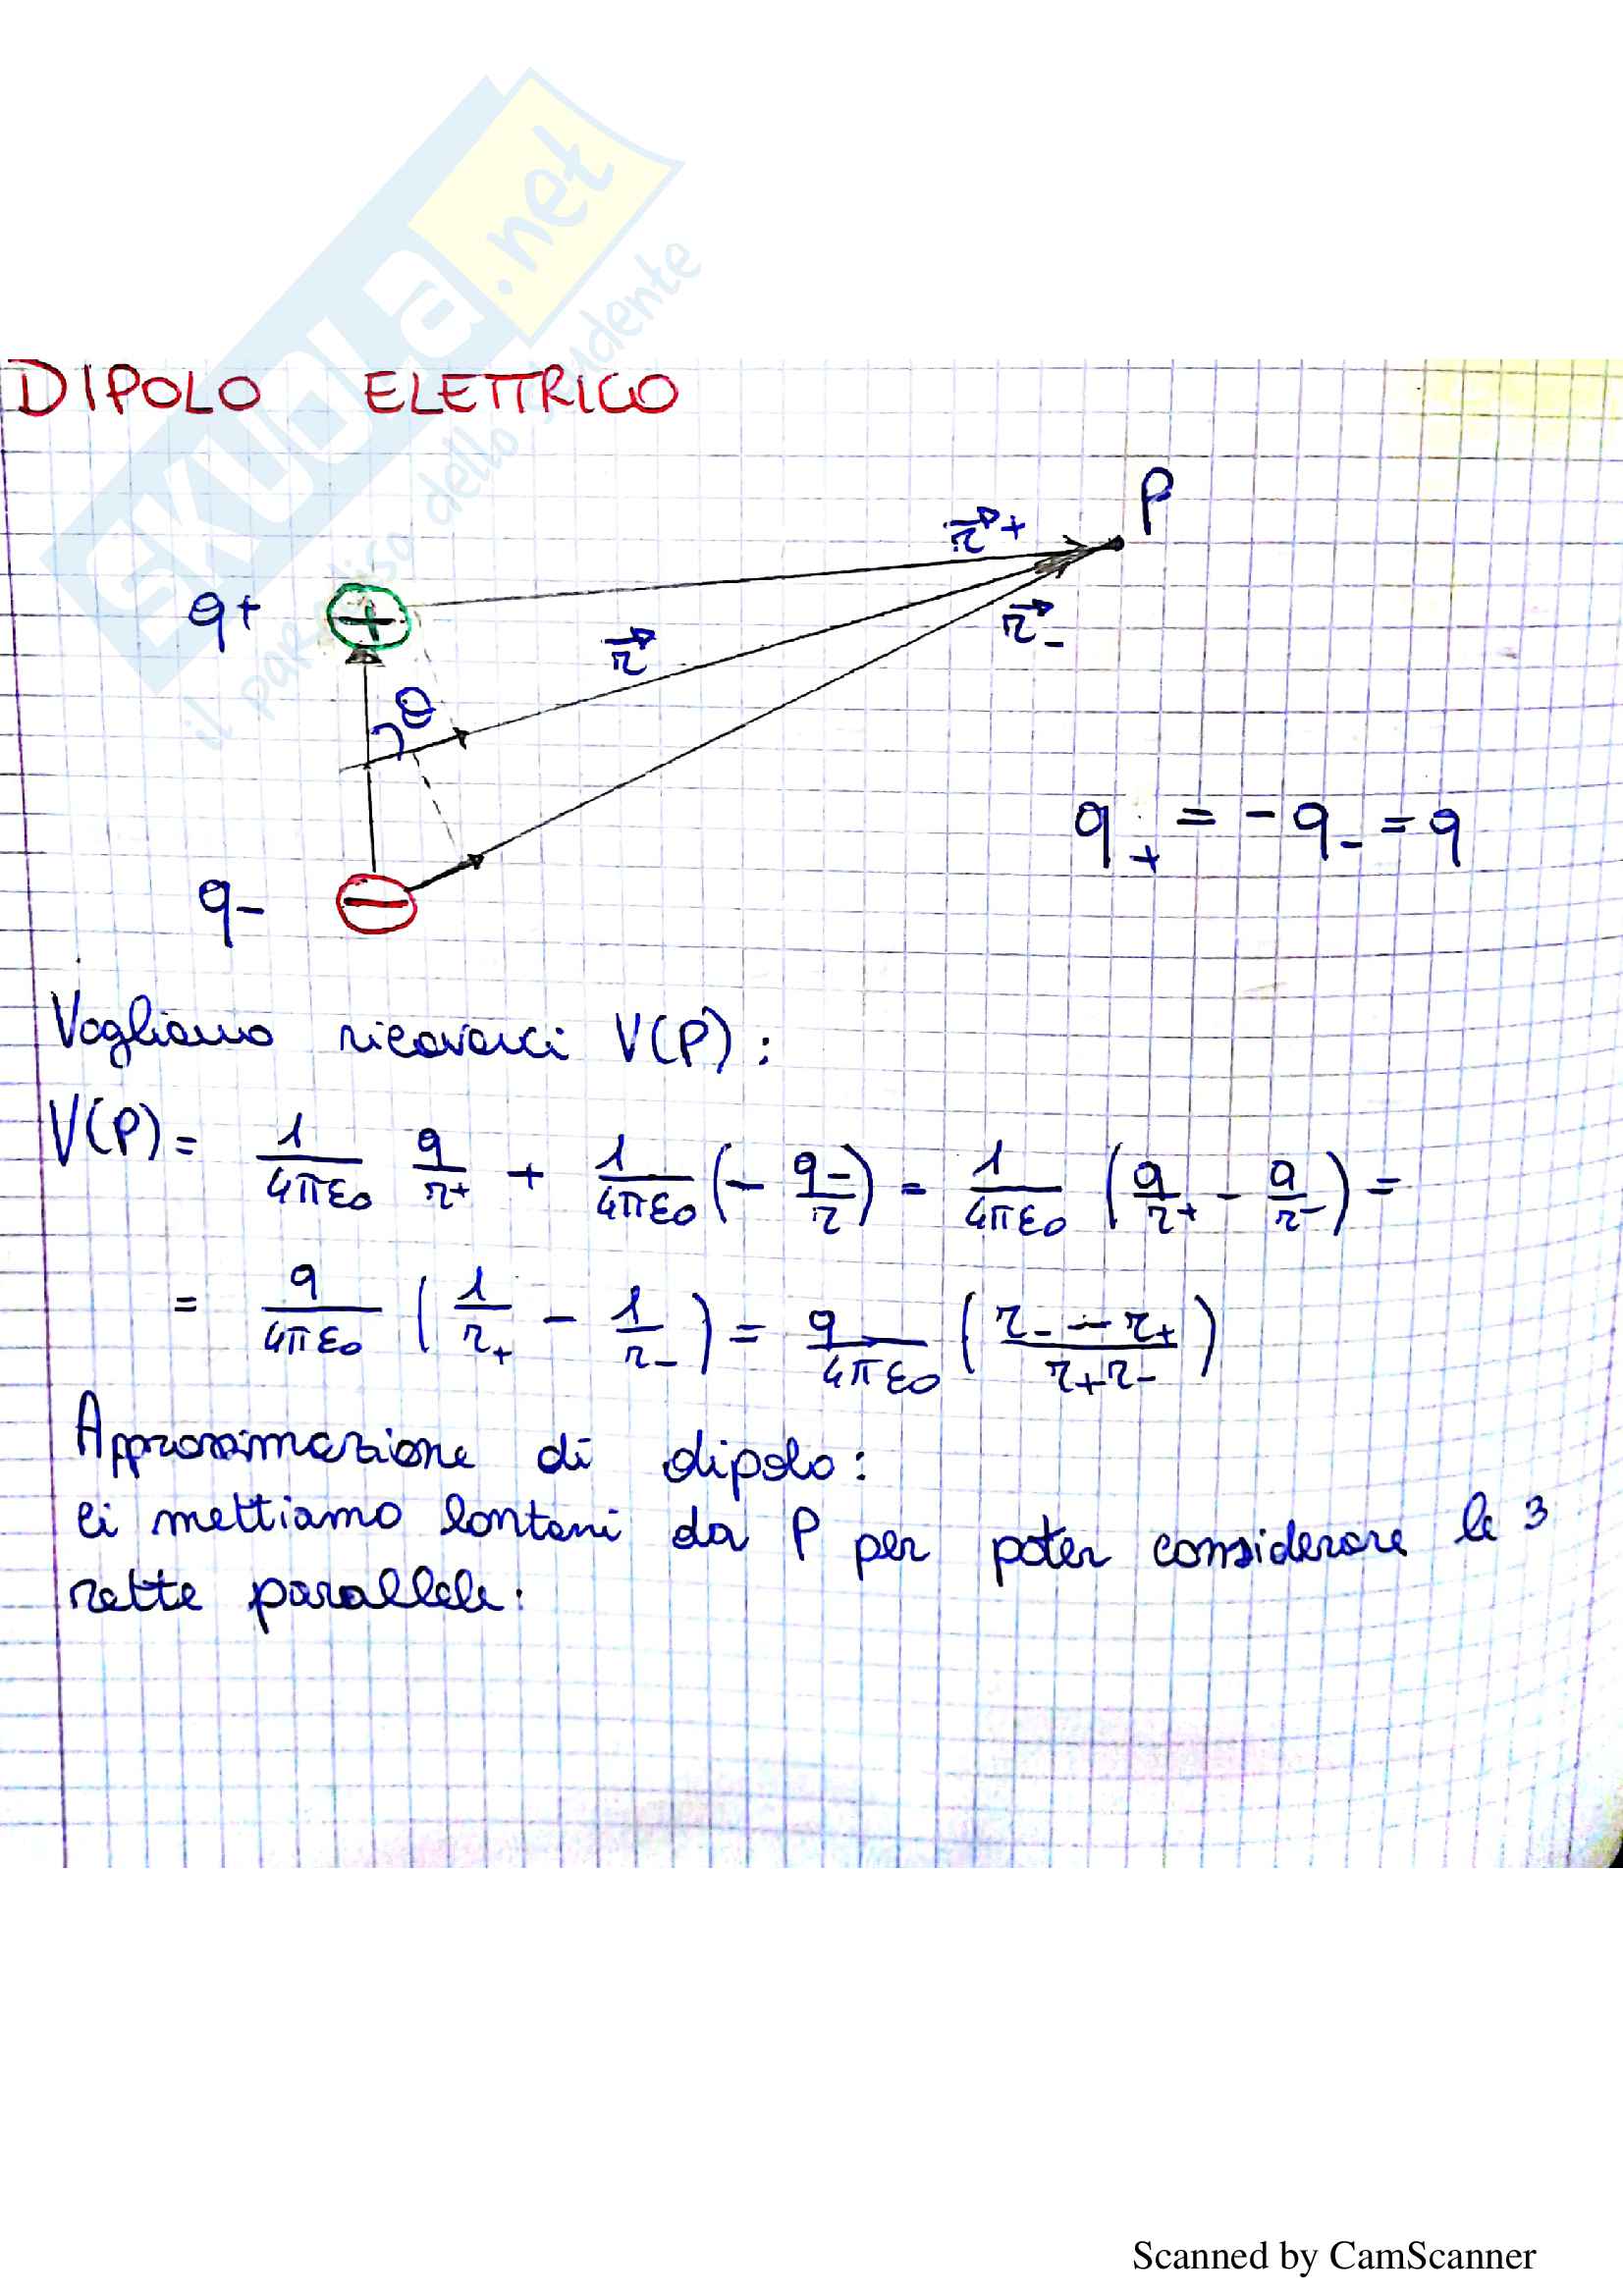 SKUOLA.net
il paradiso dello studente
DIPOLO ELETTRICO
P
r⃗+
q+ +
r⃗
r⃗-
θ
q₊ = -q₋ = q
q- −
Vogliamo ricavarci V(P):
V(P) = 1/4πε0 q/r+ + 1/4πε0 (- q-/r) = 1/4πε0 (q/r+ - q/r-) =
= q/4πε0 (1/r+ - 1/r-) = q/4πε0 (r- - r+/r+r-)
Approssimazione di dipolo:
ci mettiamo lontani da P per poter considerare le 3
rette parallele.
Scanned by CamScanner